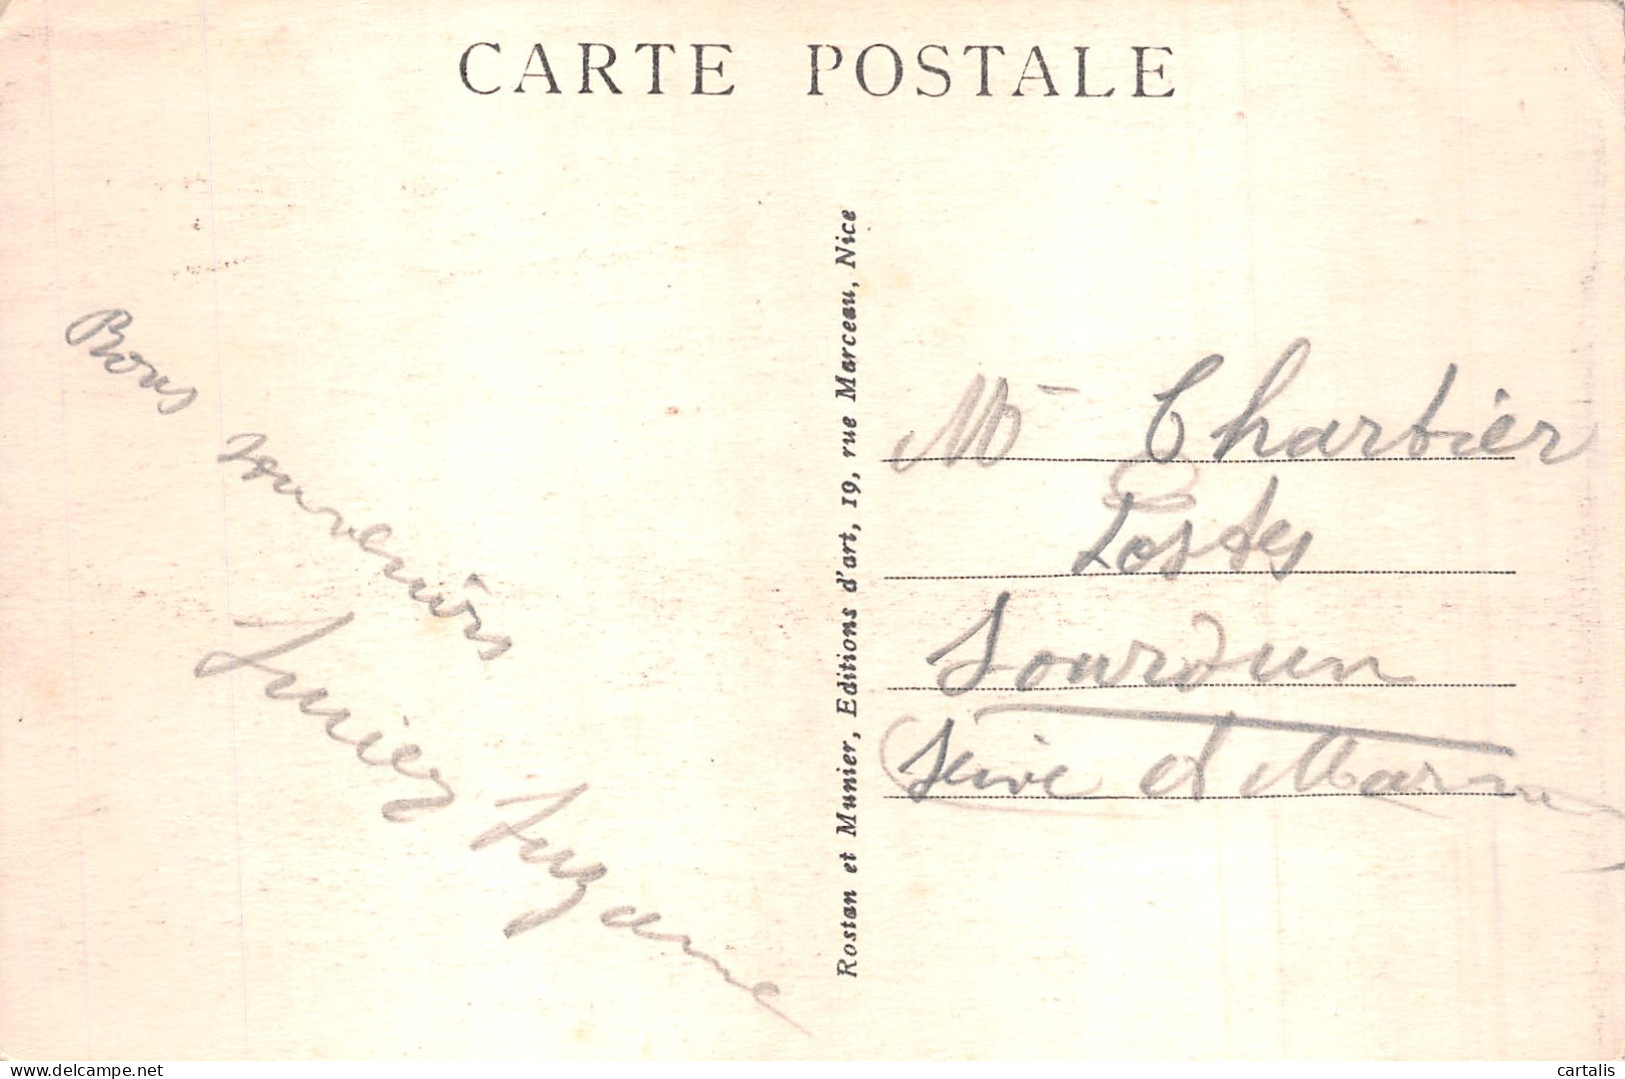 CARTE POSTALE
Bons
souvenirs
Suzanne
Rostan et Munier, Editions d'art, 19, rue Marceau, Nice
Mr Chartier
Sourdun
Seine et Marne
cartalis